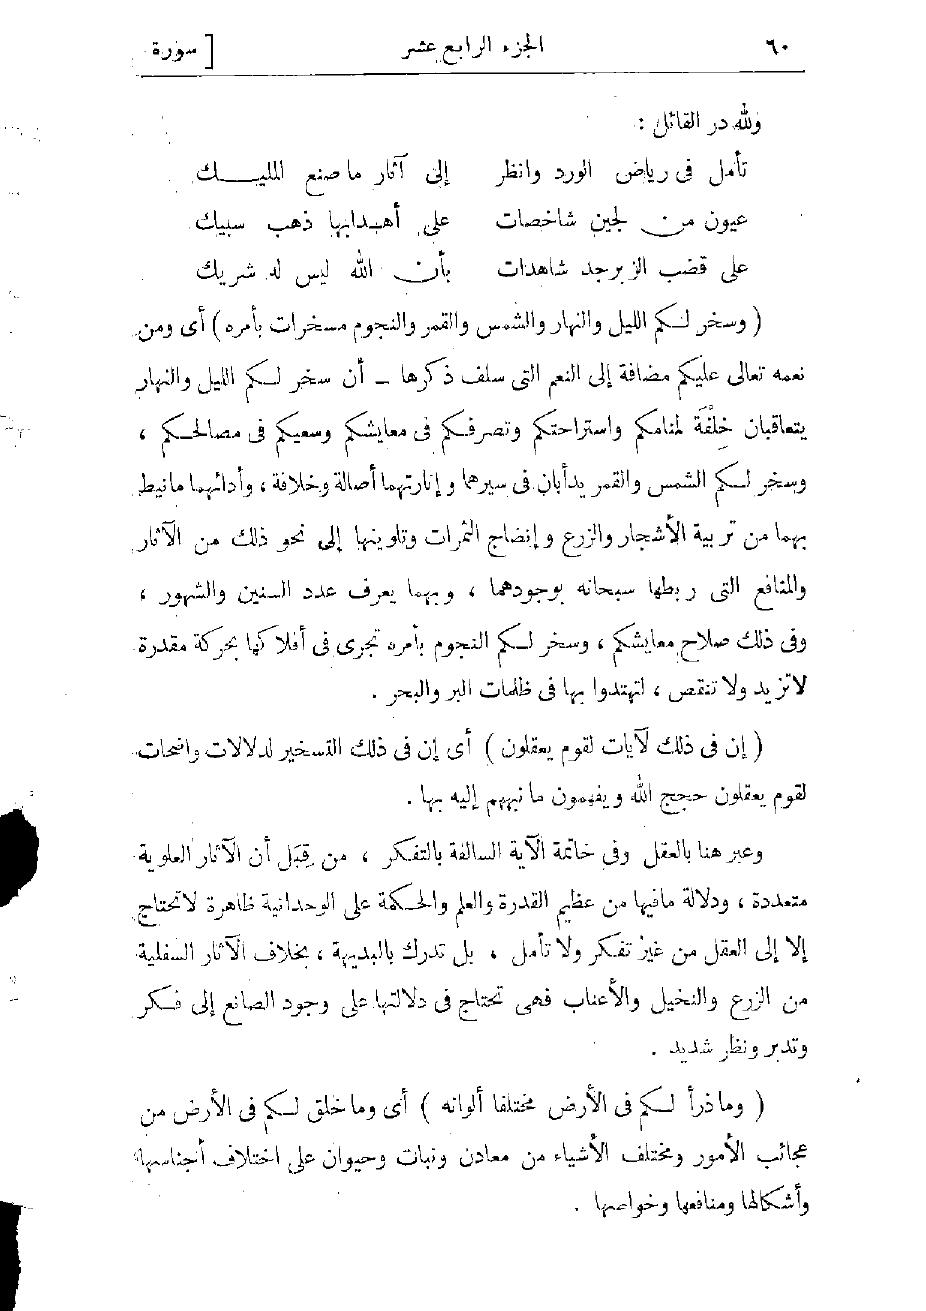 ٦٠ الجزء الرابع عشر [ سورة
ولله در القائل :
تأمل فى رياض الورد وانظر إلى آثار ماصنع المليك
عيون من لجين شاخصات على أهدابها ذهب سبيك
على قضب الزبرجد شاهدات بأن الله ليس له شريك
( وسخر لكم الليل والنهار والشمس والقمر والنجوم مسخرات بأمره ) أى ومن
نعمه تعالى عليكم مضافة إلى النعم التى سلف ذكرها – أن سخر لكم الليل والنهار
يتعاقبان خِلْفَة لمنامكم واستراحتكم وتصرفكم فى معايشكم وسعيكم فى مصالحكم ،
وسخر لكم الشمس والقمر يدأبان فى سيرهما وإنارتهما أصالة وخلافة ، وأدائهما مانيط
بهما من تربية الأشجار والزرع وإنضاج الثمرات وتلوينها إلى نحو ذلك من الآثار
والمنافع التى ربطها سبحانه بوجودهما ، وبهما يعرف عدد السنين والشهور ،
وفى ذلك صلاح معايشكم ، وسخر لكم النجوم بأمره تجرى فى أفلاكها بحركة مقدرة
لاتزيد ولا تنقص ، لتهتدوا بها فى ظلمات البر والبحر .
( إن فى ذلك لآيات لقوم يعقلون ) أى إن فى ذلك التسخير لدلالات واضحات
لقوم يعقلون حجج الله ويفهمون مانبههم إليه بها .
وعبر هنا بالعقل وفى خاتمة الآية السالفة بالتفكر ، من قِبَل أن الآثار العلوية
متعددة ، ودلالة مافيها من عظيم القدرة والعلم والحكمة على الوحدانية ظاهرة لاتحتاج
إلا إلى العقل من غير تفكر ولا تأمل ، بل تدرك بالبديهة ، بخلاف الآثار السفلية
من الزرع والنخيل والأعناب فهى تحتاج فى دلالتها على وجود الصانع إلى فكر
وتدبر ونظر شديد .
( وماذرأ لكم فى الأرض مختلفا ألوانه ) أى وماخلق لكم فى الأرض من
عجائب الأمور ومختلف الأشياء من معادن ونبات وحيوان على اختلاف أجناسها
وأشكالها ومنافعها وخواصها .